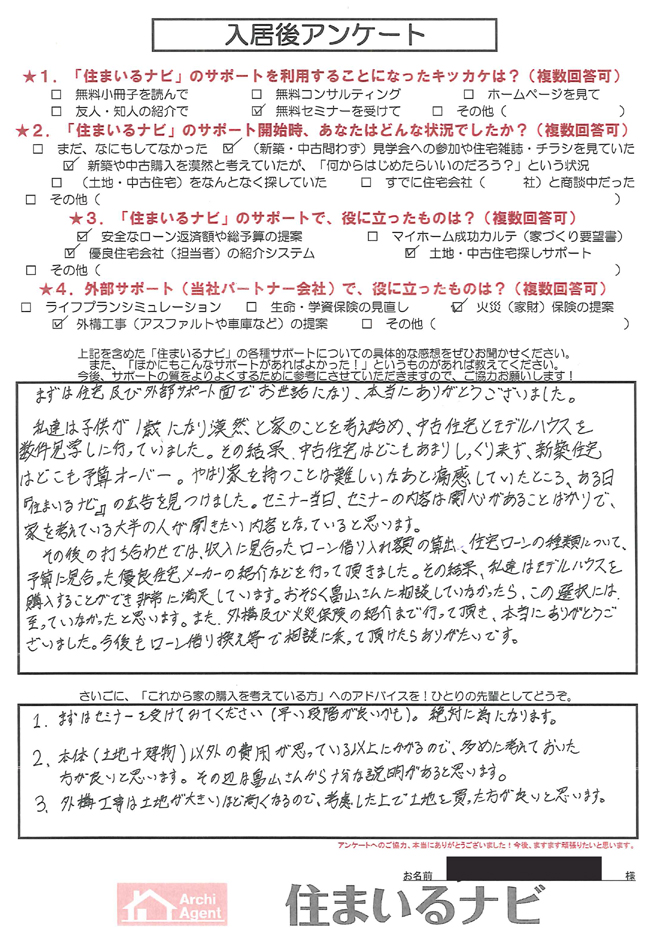 入居後アンケート
★1．「住まいるナビ」のサポートを利用することになったキッカケは？（複数回答可）
□ 無料小冊子を読んで □ 無料コンサルティング □ ホームページを見て
□ 友人・知人の紹介で ☑ 無料セミナーを受けて □ その他（ ）
★2．「住まいるナビ」のサポート開始時、あなたはどんな状況でしたか？（複数回答可）
□ まだ、なにもしてなかった ☑ （新築・中古問わず）見学会への参加や住宅雑誌・チラシを見ていた
☑ 新築や中古購入を漠然と考えていたが、「何からはじめたらいいのだろう？」という状況
□ （土地・中古住宅）をなんとなく探していた □ すでに住宅会社（ 社）と商談中だった
□ その他（ ）
★3．「住まいるナビ」のサポートで、役に立ったものは？（複数回答可）
☑ 安全なローン返済額や総予算の提案 □ マイホーム成功カルテ（家づくり要望書）
☑ 優良住宅会社（担当者）の紹介システム ☑ 土地・中古住宅探しサポート
□ その他（ ）
★4．外部サポート（当社パートナー会社）で、役に立ったものは？（複数回答可）
□ ライフプランシミュレーション □ 生命・学資保険の見直し ☑ 火災（家財）保険の提案
☑ 外構工事（アスファルトや車庫など）の提案 □ その他（ ）
上記を含めた「住まいるナビ」の各種サポートについての具体的な感想をぜひお聞かせください。
また、「ほかにもこんなサポートがあればよかった！」というものがあれば教えてください。
今後、サポートの質をよりよくするために参考にさせていただきますので、ご協力お願いします！
まずは住宅及び外部サポート面でお世話になり、本当にありがとうございました。
私達は子供が1歳になり漠然と家のことを考え始め、中古住宅とモデルハウスを
数件見学しに行っていました。その結果、中古住宅はどこもあまりしっくり来ず、新築住宅
はどこも予算オーバー。やはり家を持つことは難しいなあと痛感していたところ、ある日
『住まいるナビ』の広告を見つけました。セミナー当日、セミナーの内容は関心があることばかりで、
家を考えている大半の人が聞きたい内容となっていると思います。
その後の打ち合わせでは、収入に見合ったローン借り入れ額の算出、住宅ローンの種類について、
予算に見合った優良住宅メーカーの紹介などを行って頂きました。その結果、私達はモデルハウスを
購入することができ非常に満足しています。おそらく畠山さんに相談していなかったら、この選択には
至っていなかったと思います。また、外構及び火災保険の紹介まで行って頂き、本当にありがとうご
ざいました。今後もローン借り換え等で相談に乗って頂けたらありがたいです。
さいごに、「これから家の購入を考えている方」へのアドバイスを！ひとりの先輩としてどうぞ。
1. まずはセミナーを受けてみてください（早い段階が良いかも）。絶対に為になります。
2. 本体（土地＋建物）以外の費用が思っている以上にかかるので、多めに考えておいた
方が良いと思います。その辺は畠山さんから十分な説明があると思います。
3. 外構工事は土地が大きいほど高くなるので、考慮した上で土地を買った方が良いと思います。
アンケートへのご協力、本当にありがとうございました！今後、ますます頑張りたいと思います。
お名前 様
Archi
Agent
住まいるナビ